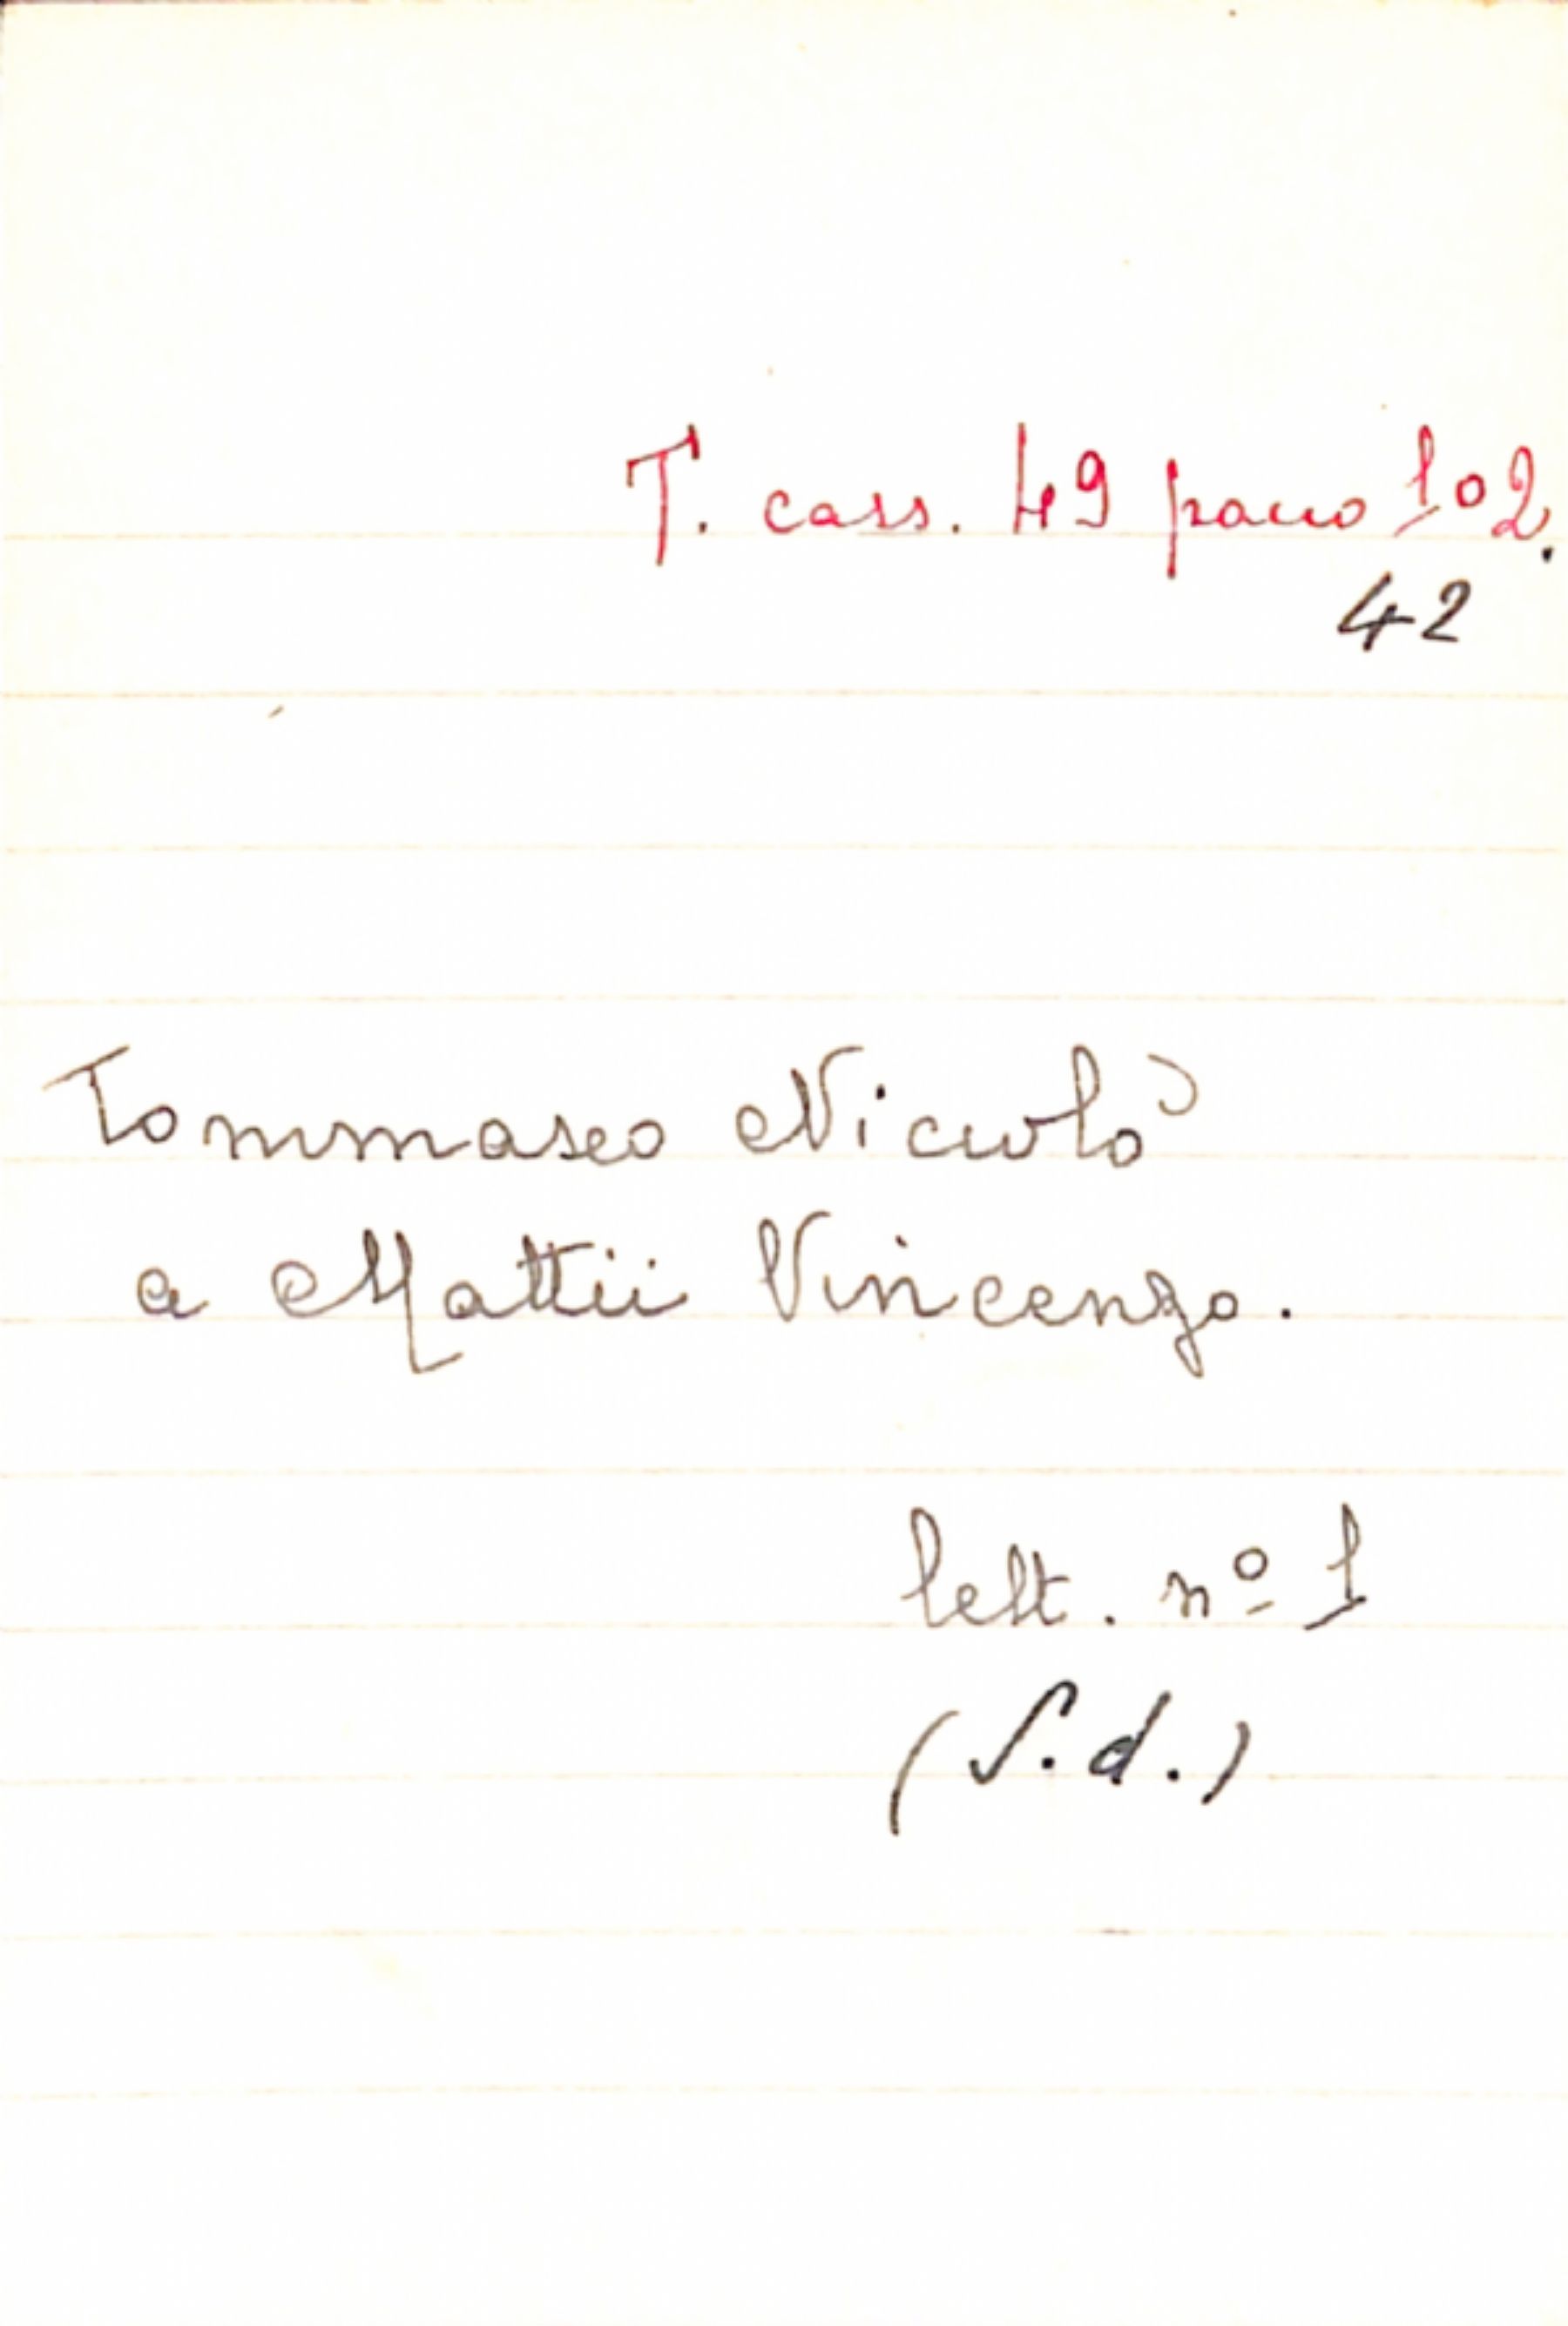 T. cass. 49 pacco 102.
42
Tommaseo Niccolò
a Mattii Vincenzo.
lett. nº 1
(S.d.)